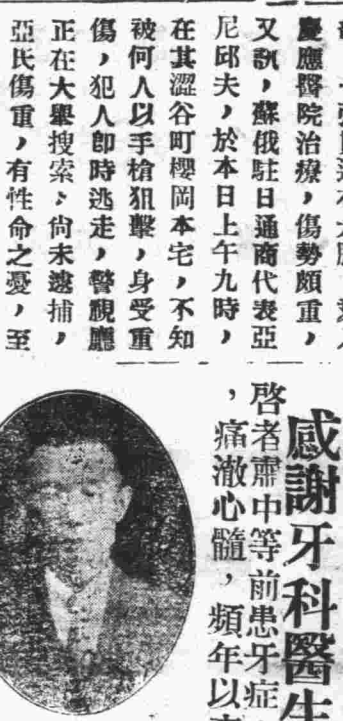 慶應醫院治療，傷勢頗重，
又訊，蘇俄駐日通商代表亞
尼邱夫，於本日上午九時，
在其澀谷町櫻岡本宅，不知
被何人以手槍狙擊，身受重
傷，犯人卽時逃走，警視廳
正在大舉搜索，尙未逮捕，
亞氏傷重，有性命之憂，至
感謝牙科醫生
啓者肅中等前患牙症
，痛澈心髓，頻年以